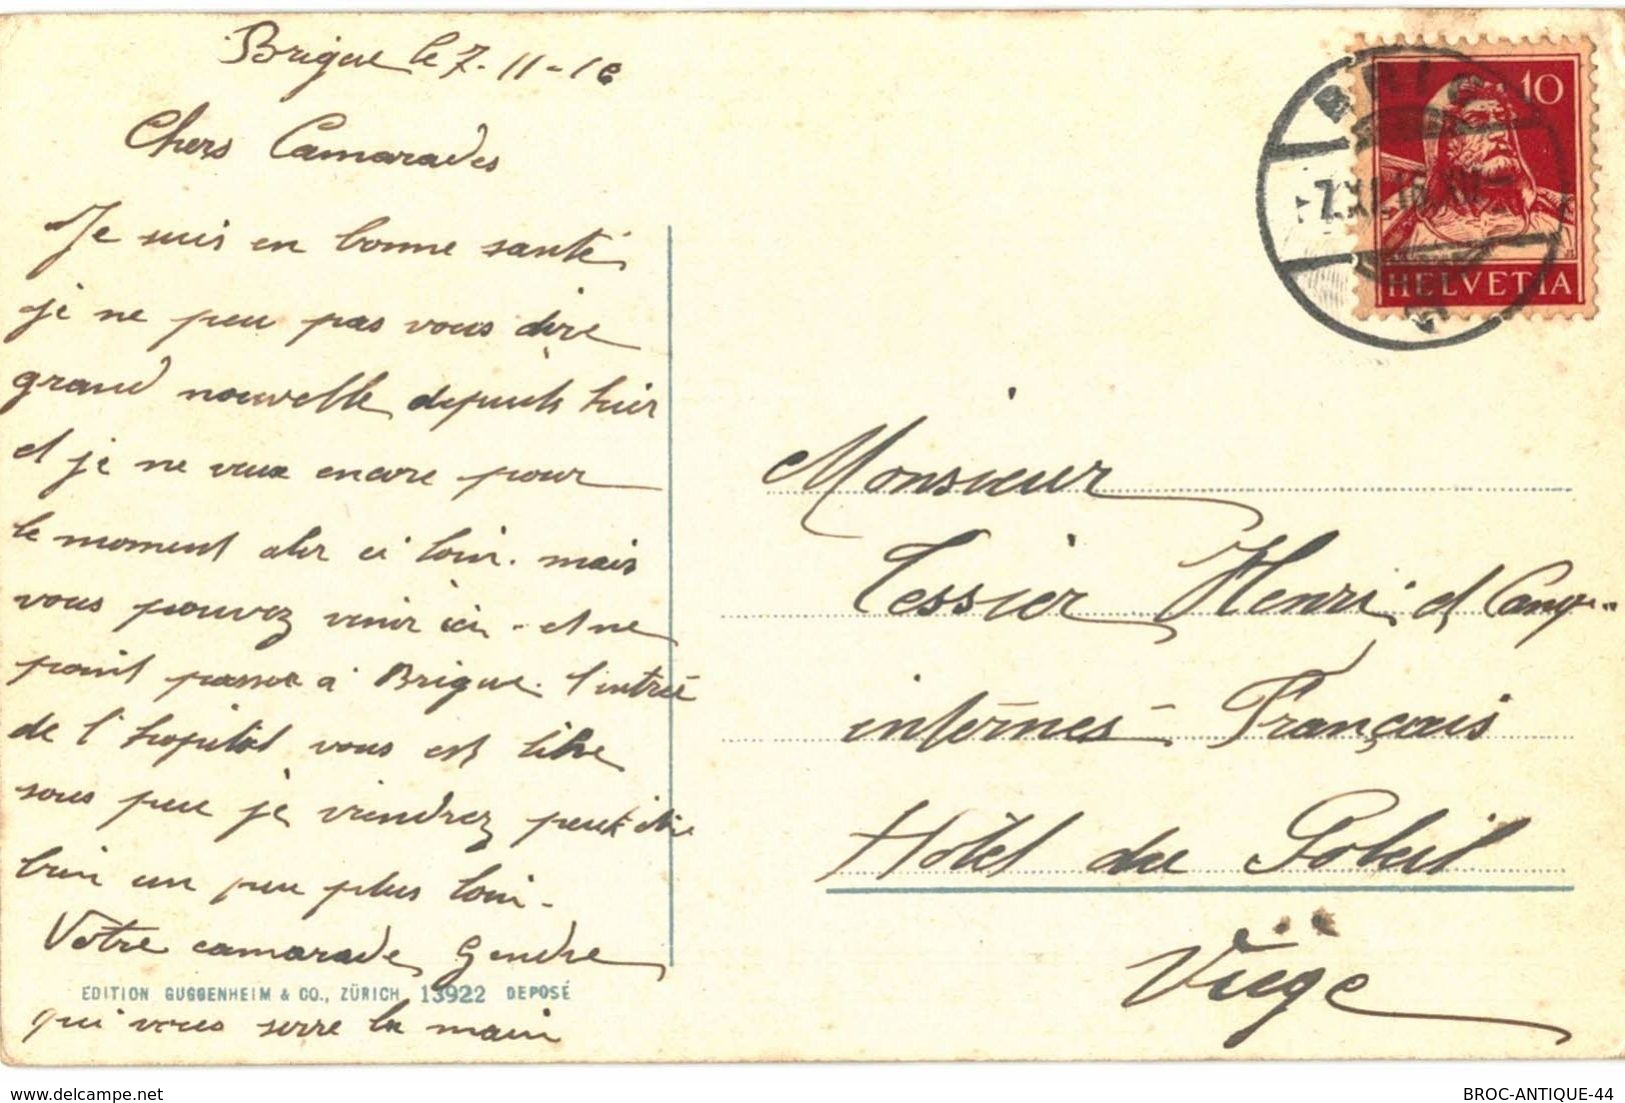 Brigue le 7-11-16
Chers Camarades
Je suis en bonne santé
je ne peu pas vous dire
grand nouvelle depuis hier
et je ne veux encore pour
le moment aler ci loin. mais
vous pouvez venir ici - et ne
point passer à Brigue. l'entrée
de l'hopital vous est libre
sous peu je viendrez peut être
bien un peu plus loin -
Votre camarade Gendre
EDITION GUGGENHEIM & CO., ZÜRICH 13922 DEPOSÉ
qui vous serre la main
BRIG
7.XI.16.XII
10
HELVETIA
Monsieur
Tessier Henri et
internés Français
Hôtel du Soleil
Viège
delcampe.net
BROC-ANTIQUE-44